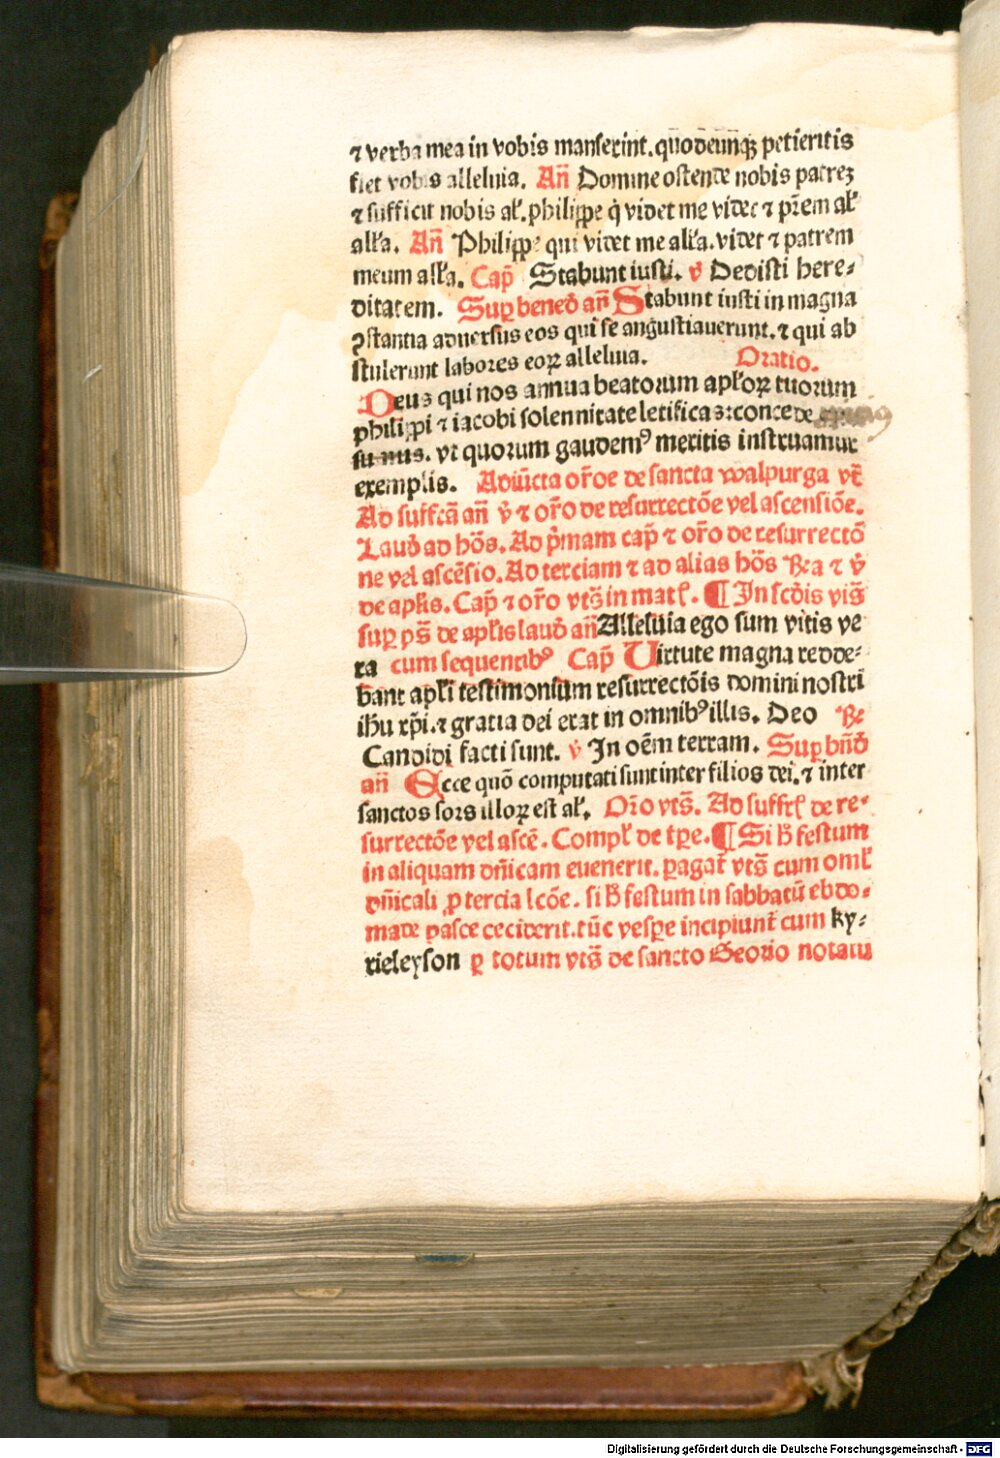 ⁊ verba mea in vobis manserint. quodcunqꝫ petieritis
fiet vobis alleluia. Añ Domine ostende nobis patreꝫ
⁊ sufficit nobis al'. philippe q̇ videt me videt ⁊ pr̄em al'
all'a. Añ Philippe qui videt me all'a. videt ⁊ patrem
meum all'a. Cap̄ Stabunt iusti. v̇ Dedisti here-
ditatem. Suꝑ bened̄ añ Stabunt iusti in magna
ꝯstantia aduersus eos qui se angustiauerunt. ⁊ qui ab
stulerunt labores eoꝝ alleluia. Oratio.
Deus qui nos annua beatorum apl'oꝝ tuorum
philippi ⁊ iacobi solennitate letificas: concede
sumus. vt quorum gaudemꝰ meritis instruamur
exemplis. Adiūcta or̄oe de sancta walpurga vt̄
Ad suffrā añ v̇ ⁊ or̄o de resurrectōe vel ascensiōe.
Laud̄ ad hōs. Ad p̄mam cap̄ ⁊ or̄o de resurrectō
ne vel ascēsio. Ad terciam ⁊ ad alias hōs ꝶa ⁊ v̇
de apl'is. Cap̄ ⁊ or̄o vts̄ in mat'. ¶ In scd̄is vis̄
suꝑ ps̄ de apl'is laud̄ añ Alleluia ego sum vitis ve
ra cum sequentibꝰ Cap̄ Virtute magna redde-
bant apl'i testimonium resurrectōis domini nostri
ih̄u xp̄i. ⁊ gratia dei erat in omnibꝰ illis. Deo ꝶ
Candidi facti sunt. v̇ In oēm terram. Suꝑ bn̄d̄
añ Ecce quō computati sunt inter filios dei. ⁊ inter
sanctos sors illoꝝ est al'. Or̄o vts̄. Ad suffr' de re-
surrectōe vel ascē. Compl' de tꝑe. ¶ Si h̄ festum
in aliquam dn̄icam euenerit. ꝑagat̄ vts̄ cum oml'
dn̄icali ꝓ tercia lcōe. si h̄ festum in sabbatū ebdo-
made pasce ceciderit. tūc vesꝑe incipiunt̄ cum ky-
rieleyson ꝑ totum vts̄ de sancto Georio notatū
Digitalisierung gefördert durch die Deutsche Forschungsgemeinschaft - DFG